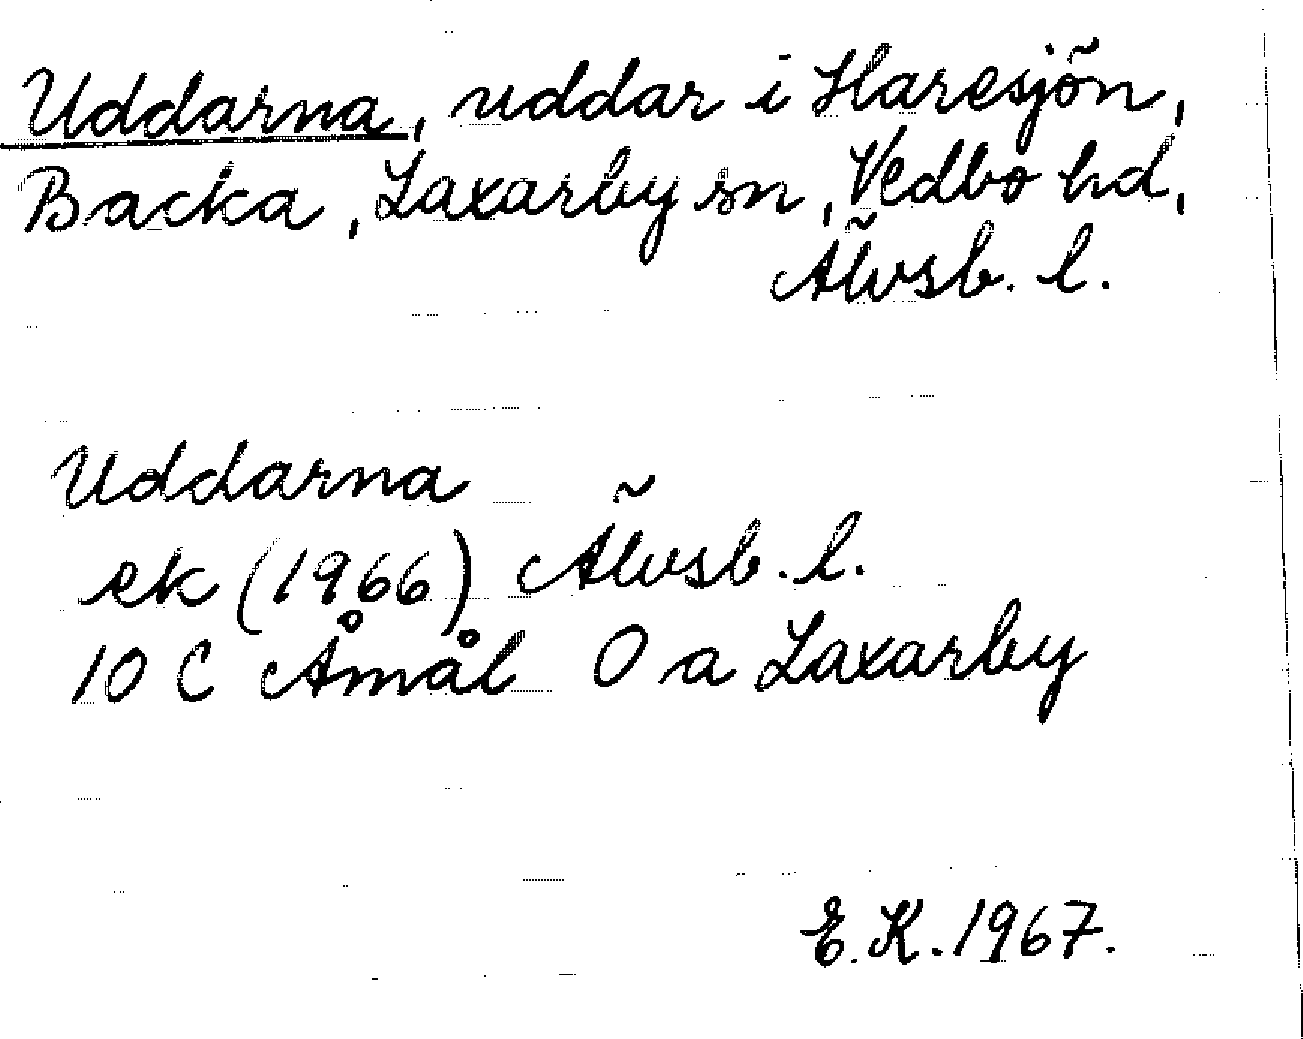 Uddarna, uddar i Haresjön,
Backa, Laxarby sn, Vedbo hd,
Älvsb. l.
Uddarna
ek (1966) Älvsb. l.
10 C Åmål O a Laxarby
E. K. 1967.